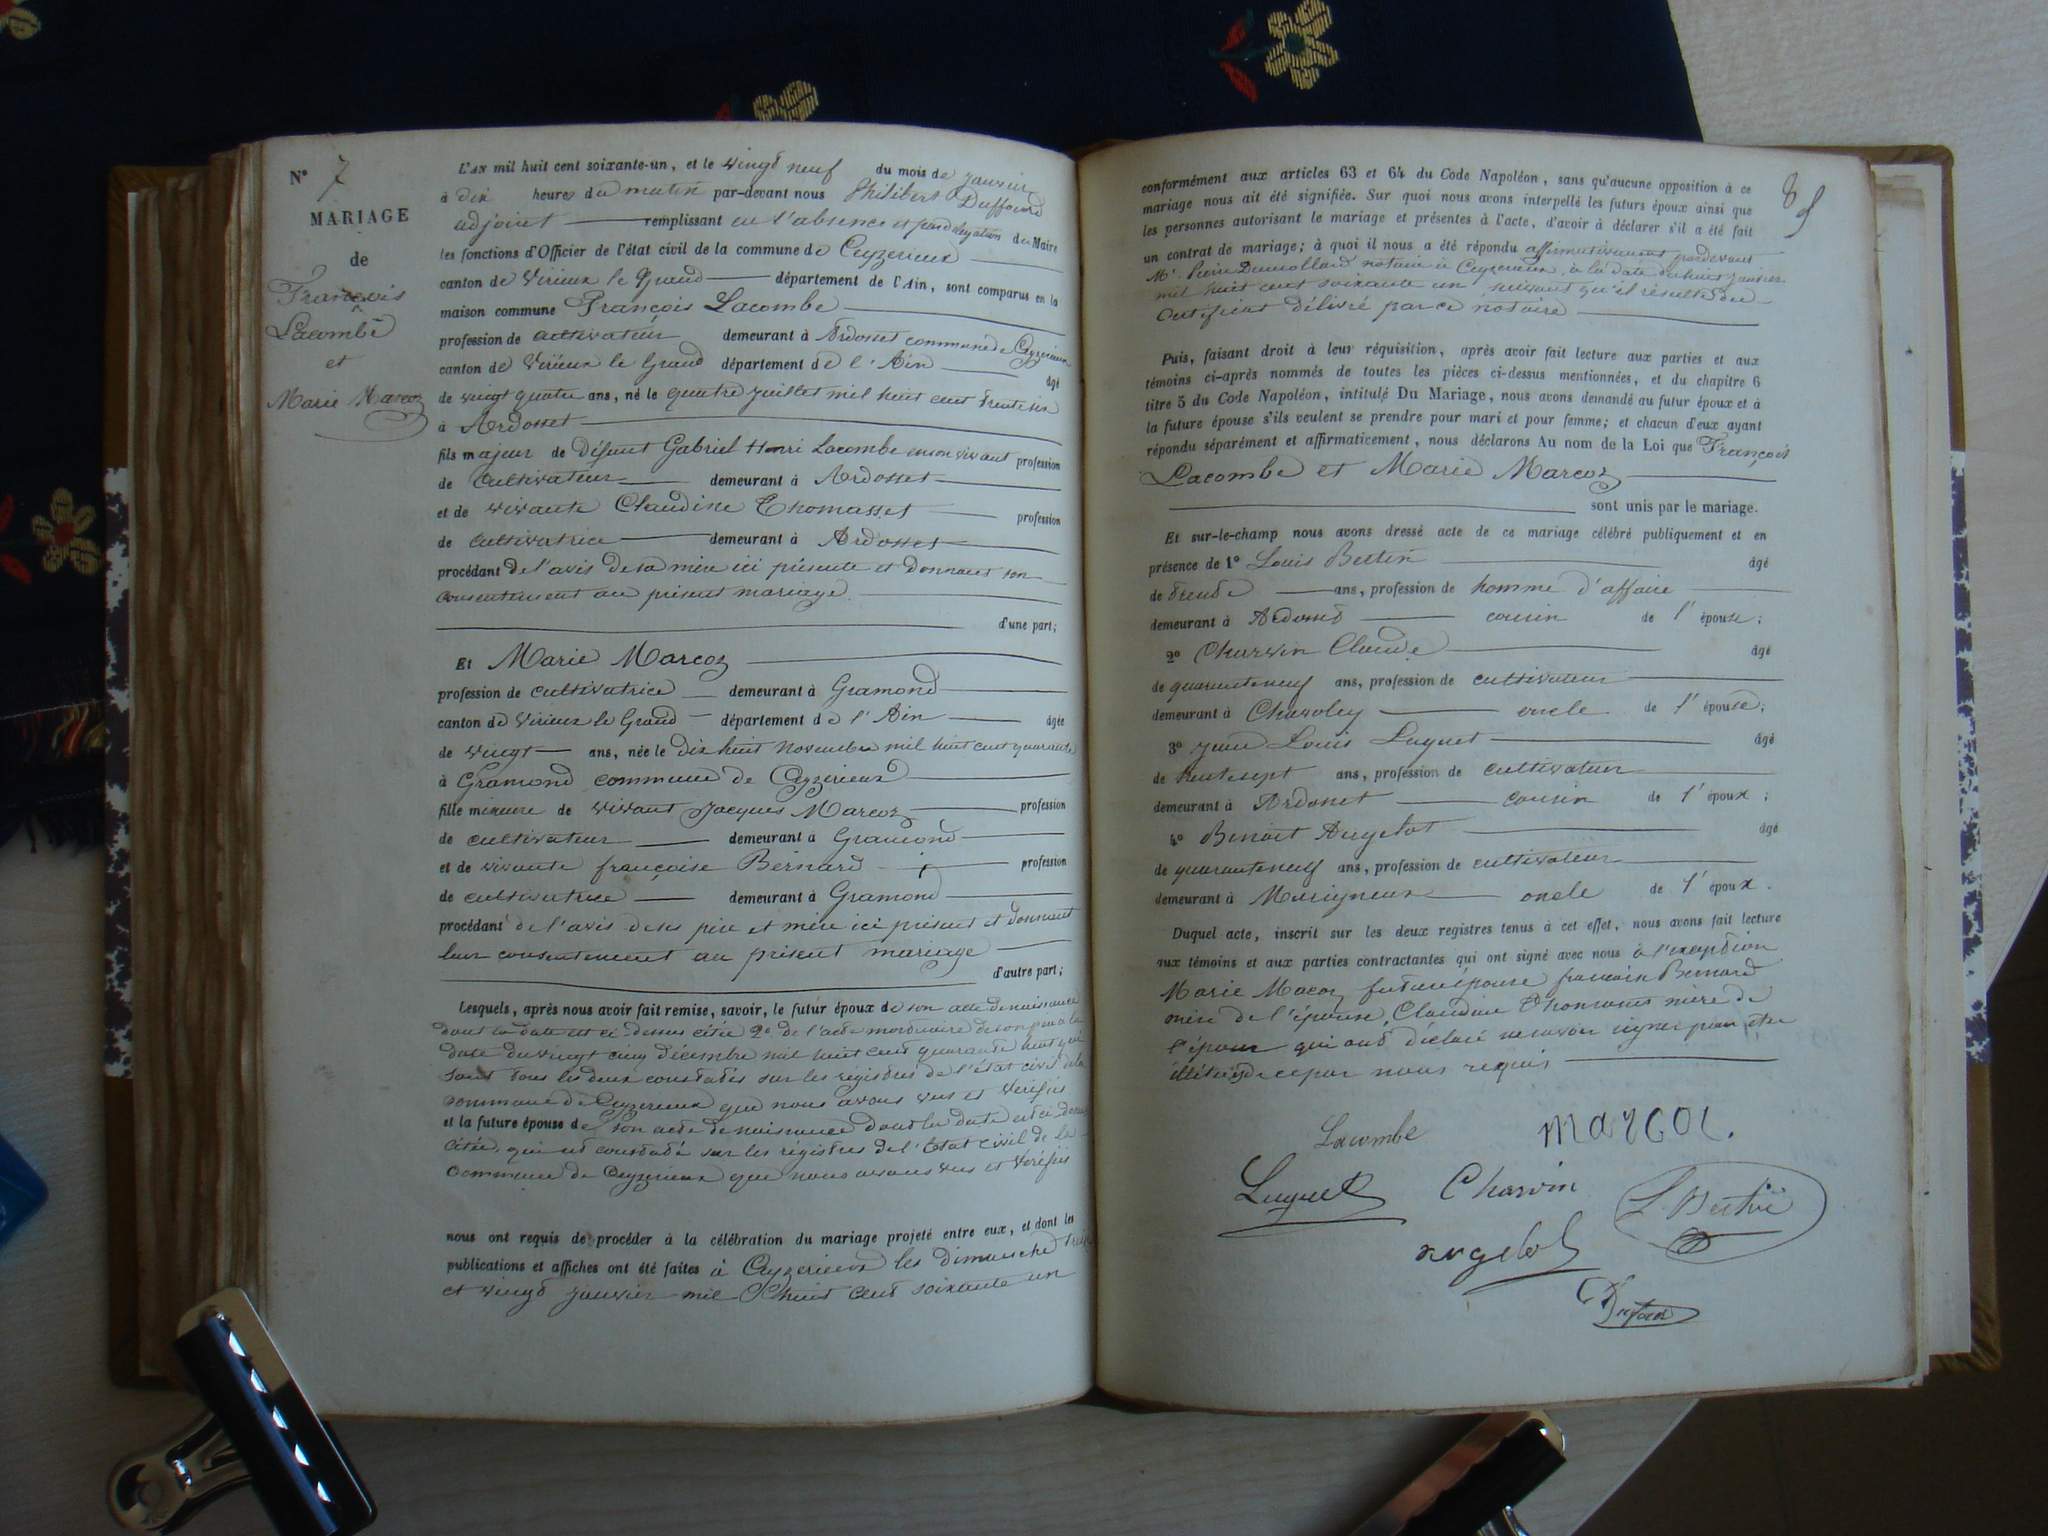 N° 7
MARIAGE
de
François
Lacombe
et
Marie Marcoz
L'AN mil huit cent soixante-un, et le vingt neuf du mois de janvier
à dix heures du matin par-devant nous Philibert Duffourd
adjoint remplissant en l'absence et par délégation du Maire
les fonctions d'Officier de l'état civil de la commune de Ceyzerieux
canton de Virieux le Grand département de l'Ain, sont comparus en la
maison commune François Lacombe
profession de cultivateur demeurant à Ardosset commune de Ceyzerieux
canton de Virieux le Grand département de l'Ain âgé
de vingt quatre ans, né le quatre juillet mil huit cent trente six
à Ardosset
fils majeur de défunt Gabriel Henri Lacombe en son vivant profession
de cultivateur demeurant à Ardosset
et de vivante Claudine Thomasset profession
de cultivatrice demeurant à Ardosset
procédant de l'avis de sa mère ici présente et donnant son
consentement au présent mariage
d'une part;
Et Marie Marcoz
profession de cultivatrice demeurant à Gramond
canton de Virieux le Grand département de l'Ain âgée
de vingt ans, née le dix huit novembre mil huit cent quarante
à Gramond commune de Ceyzerieux
fille mineure de vivant Jacques Marcoz profession
de cultivateur demeurant à Gramond
et de vivante françoise Bernard profession
de cultivatrice demeurant à Gramond
procédant de l'avis de ses père et mère ici présent et donnant
leur consentement au présent mariage
d'autre part;
Lesquels, après nous avoir fait remise, savoir, le futur époux de son acte de naissance
dont la date est ci-dessus citée 2° de l'acte mortuaire de son père à la
date du vingt cinq décembre mil huit cent quarante huit qui
sont tous les deux constatés sur les régistres de l'état civil de la
commune de Ceyzerieux que nous avons vus et vérifiés
et la future épouse de son acte de naissance dont la date est ci dessus
citée, qui est constaté sur les régistres de l'Etat civil de la
commune de Ceyzerieux que nous avons vus et vérifiés
nous ont requis de procéder à la célébration du mariage projeté entre eux, et dont les
publications et affiches ont été faites à Ceyzerieux les dimanche treize
et vingt janvier mil huit cent soixante un
conformément aux articles 63 et 64 du Code Napoléon, sans qu'aucune opposition à ce
mariage nous ait été signifiée. Sur quoi nous avons interpellé les futurs époux ainsi que
les personnes autorisant le mariage et présentes à l'acte, d'avoir à déclarer s'il a été fait
un contrat de mariage; à quoi il nous a été répondu affirmativement pardevant
Mr Pierre Dumollard notaire à Ceyzerieux, à la date du huit janvier
mil huit cent soixante un suivant qu'il résulte du
certificat délivré par ce notaire
Puis, faisant droit à leur réquisition, après avoir fait lecture aux parties et aux
témoins ci-après nommés de toutes les pièces ci-dessus mentionnées, et du chapitre 6
titre 5 du Code Napoléon, intitulé Du Mariage, nous avons demandé au futur époux et à
la future épouse s'ils veulent se prendre pour mari et pour femme; et chacun d'eux ayant
répondu séparément et affirmaticement, nous déclarons Au nom de la Loi que François
Lacombe et Marie Marcoz
sont unis par le mariage.
Et sur-le-champ nous avons dressé acte de ce mariage célébré publiquement et en
présence de 1° Louis Bertin âgé
de trente ans, profession de homme d'affaire
demeurant à Ardosset cousin de l'épouse;
2° Charvin Claude âgé
de quarante neuf ans, profession de cultivateur
demeurant à Charoley oncle de l'épouse;
3° Jean Louis Luguet âgé
de trente sept ans, profession de cultivateur
demeurant à Ardosset cousin de l'époux;
4° Benoit Augelot âgé
de quarante neuf ans, profession de cultivateur
demeurant à Marigneux oncle de l'époux.
Duquel acte, inscrit sur les deux registres tenus à cet effet, nous avons fait lecture
aux témoins et aux parties contractantes qui ont signé avec nous à l'exception
Marie Macoz future épouse françoise Bernard
mère de l'épouse, Claudine Thomasset mère de
l'époux qui ont déclaré ne savoir signer pour être
illétrés de ce par nous requis
Lacombe MARCOZ.
Luguet Charvin L. Bertin
Augelot
Duffourd